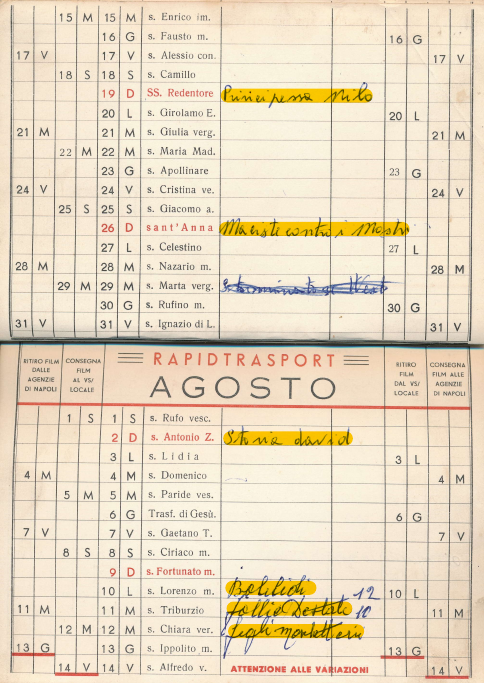 15 M 15 M s. Enrico im.
16 G s. Fausto m. 16 G
17 V 17 V s. Alessio con. 17 V
18 S 18 S s. Camillo
19 D SS. Redentore Principessa Nilo
20 L s. Girolamo E. 20 L
21 M 21 M s. Giulia verg. 21 M
22 M 22 M s. Maria Mad.
23 G s. Apollinare 23 G
24 V 24 V s. Cristina ve. 24 V
25 S 25 S s. Giacomo a.
26 D sant'Anna Maciste contro i Mostri
27 L s. Celestino 27 L
28 M 28 M s. Nazario m. 28 M
29 M 29 M s. Marta verg.
30 G s. Rufino m. 30 G
31 V 31 V s. Ignazio di L. 31 V
RITIRO FILM DALLE AGENZIE DI NAPOLI
CONSEGNA FILM AL VS/ LOCALE
RAPIDTRASPORT
AGOSTO
RITIRO FILM DAL VS/ LOCALE
CONSEGNA FILM ALLE AGENZIE DI NAPOLI
1 S 1 S s. Rufo vesc.
2 D s. Antonio Z. Storia david
3 L s. Lidia 3 L
4 M 4 M s. Domenico 4 M
5 M 5 M s. Paride ves.
6 G Trasf. di Gesù. 6 G
7 V 7 V s. Gaetano T. 7 V
8 S 8 S s. Ciriaco m.
9 D s. Fortunato m.
10 L s. Lorenzo m. 12 10 L
11 M 11 M s. Triburzio follie Destate 10 11 M
12 M 12 M s. Chiara ver. figli moschettieri
13 G 13 G s. Ippolito m. 13 G
14 V 14 V s. Alfredo v. ATTENZIONE ALLE VARIAZIONI 14 V